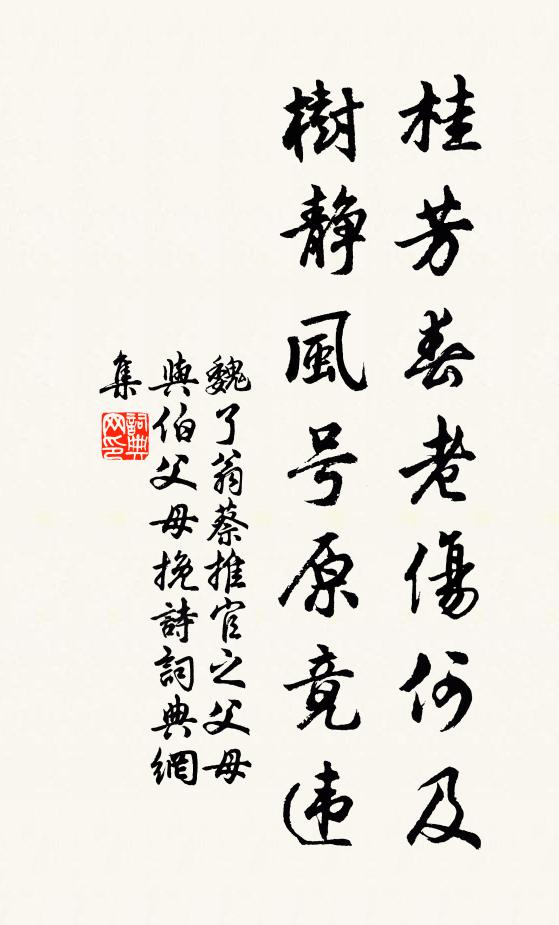 桂芳春老傷何及
樹静風号原竟违
魏了翁蔡推官之父母
與伯父母挽詩詞典網
集
詞典
网印